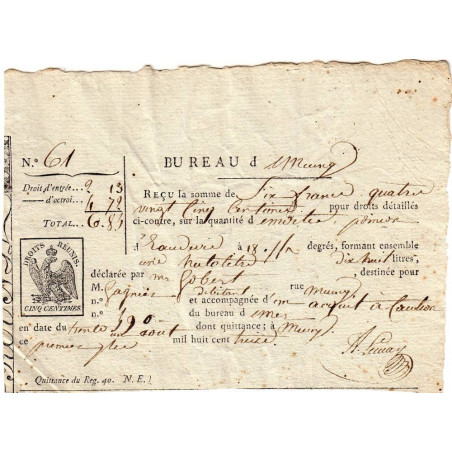 N.º 61
BUREAU d Meung
Droit d'entrée... 2 13
— d'octroi... 4 72
TOTAL... 6. 85
REÇU la somme de Six francs quatre
vingt cinq centimes pour droits détaillés
ci-contre, sur la quantité d
d à 18 degrés, formant ensemble
une hectolitre dixhuit litres,
déclarée par mr Gobert, destinée pour
M. débitant rue Meung
n.º et accompagnée d'un acquit à Caution
n.º 190 du bureau d
en date du trente août dont quittance; à Meung
ce premier mil huit cent treize
DROITS RÉUNIS.
CINQ CENTIMES
Quittance du Reg. 40. N. E.